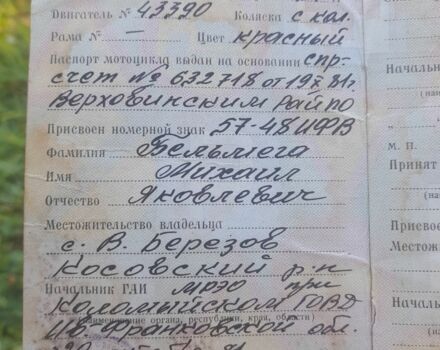 Двигатель № 43390 Коляска с кол.
Рама № — Цвет красный
Паспорт мотоцикла выдан на основании спр-
счет № 632718 от 19
Верховинским Райпо
Присвоен номерной знак 57-48 ИФВ
Фамилия Бельмега
Имя Михаил
Отчество Яковлевич
Местожительство владельца
с. В. Березов
Косовский р-н
Начальник ГАИ МРЭО при
Коломыйском ГОВД
Ив. Франковской обл.
(наименование органа, республики, края, области)
Начальни
(на
М. П.
Принят
(на
Присвое
Местож
Началь